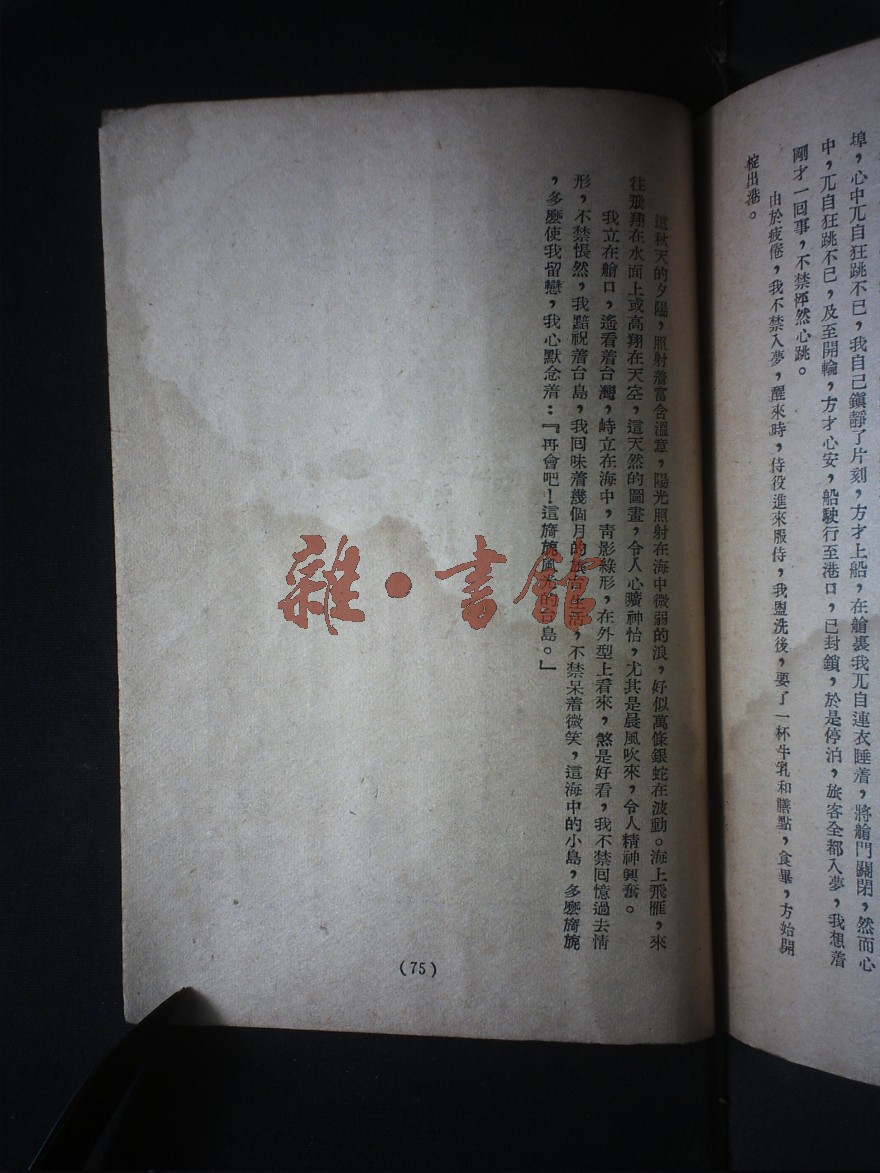 埠，心中兀自狂跳不已，我自己鎮靜了片刻，方才上船，在艙裏我兀自連衣睡着，將艙門關閉，然而心
中，兀自狂跳不已，及至開輪，方才心安，船駛行至港口，已封鎖，於是停泊，旅客全都入夢，我想着
剛才一回事，不禁怦然心跳。
由於疲倦，我不禁入夢，醒來時，侍役進來服侍，我盥洗後，要了一杯牛乳和膳點，食畢，方始開
椗出港。
這秋天的夕陽，照射着富含溫意，陽光照射在海中微弱的浪，好似萬條銀蛇在波動。海上飛雁，來
往飛翔在水面上或高翔在天空，這天然的圖畫，令人心曠神怡，尤其是晨風吹來，令人精神興奮。
我立在艙口，遙看着台灣，峙立在海中，靑影綠形，在外型上看來，煞是好看，我不禁回憶過去情
形，不禁悵然，我黯祝着台島，我回味着幾個月的旅台生活，不禁呆着微笑，這海中的小島，多麽旖旎
，多麽使我留戀，我心默念着：『再會吧！這旖旎風光的台島。』
(75)
雜·書館